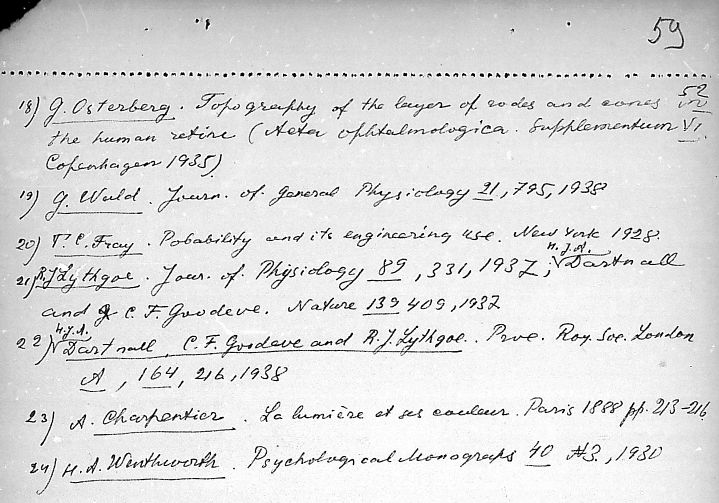 59
52
18) G. Osterberg. Topography of the layer of rodes and cones in
the human retine (Acta ophtalmologica. Supplementum VI.
Copenhagen 1935)
19) G. Wald. Journ. of. general Physiology 21, 795, 1938
20) T. C. Fray. Pobability and its engineering use. New York 1928.
21) R. J. Lythgoe. Jour. of. Physiology 89, 331, 1937; H. J. A. Dartnall
and C. F. Goodeve. Nature 139 409, 1937
22) H. J. A. Dartnall, C. F. Goodeve and R. J. Lythgoe. Proc. Roy. Soc. London
A, 164, 216, 1938
23) A. Charpentier. La lumière et ses couleur. Paris 1888 pp. 213-216
24) H. A. Wenthworth. Psychological Monographs 40 #3, 1930